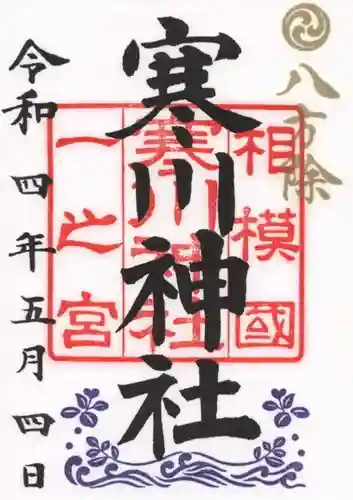 八方除
相模國
寒川神社
一之宮
寒川神社
令和四年五月四日